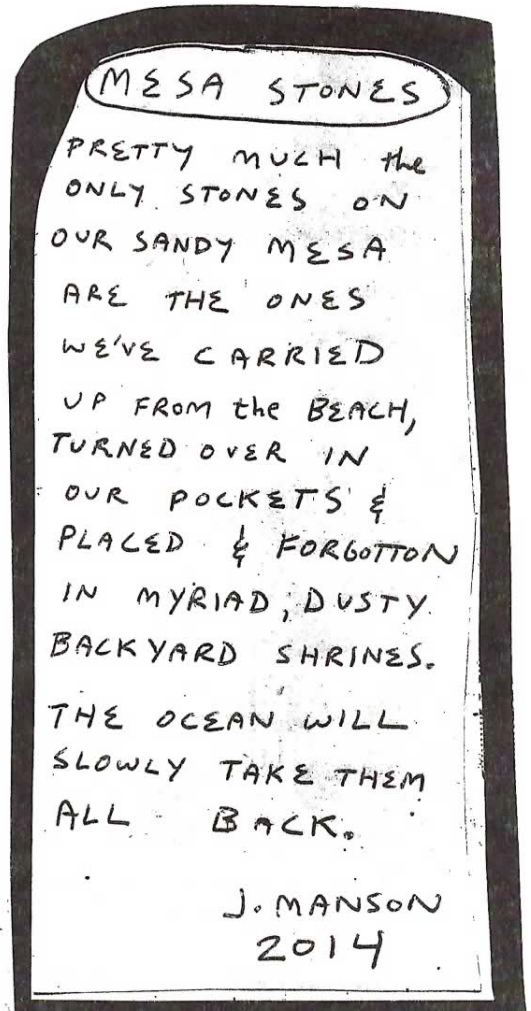 MESA STONES
PRETTY MUCH the
ONLY STONES ON
OUR SANDY MESA
ARE THE ONES
WE'VE CARRIED
UP FROM the BEACH,
TURNED OVER IN
OUR POCKETS &
PLACED & FORGOTTON
IN MYRIAD, DUSTY
BACKYARD SHRINES.
THE OCEAN WILL
SLOWLY TAKE THEM
ALL BACK.
J. MANSON
2014